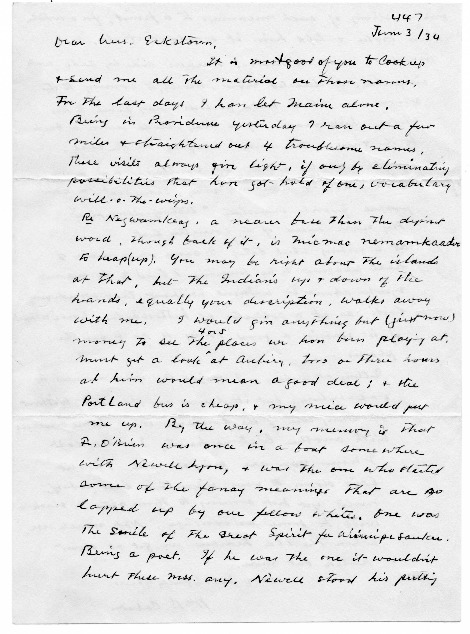 447
June 3/34
Dear Mrs. Eckstorm,
It is most good of you to look up
& send me all the material on those names.
For the last days I have let Maine alone.
Being in Providence yesterday I ran out a few
miles & straightened out 4 troublesome names.
These visits always give light, if only by eliminating
possibilities that have got hold of one, vocabulary
will-o-the-wisps.
Re Negwamkeag, a nearer base than the dupint
word, though back of it, is Micmac nemamkaadu
to heap (up). You may be right about the islands
at that, but the Indian's up & down of the
hands, equally your description, walks away
with me. I would give anything but (just now)
money to see the 4 or 5 places we have been playing at.
Must get a look at Archiry, two or three hours
at him would mean a good deal; & the
Portland bus is cheap, & my niece would put
me up. By the way, my memory is that
R. O'Brien was once in a boat somewhere
with Newell Lyon, & was the one who started
some of the fancy meanings that are so
lapped up by our fellow whites. One was
the Smile of the Great Spirit for
Being a poet. If he was the one it wouldn't
hurt these mss. any. Newell stood his putting